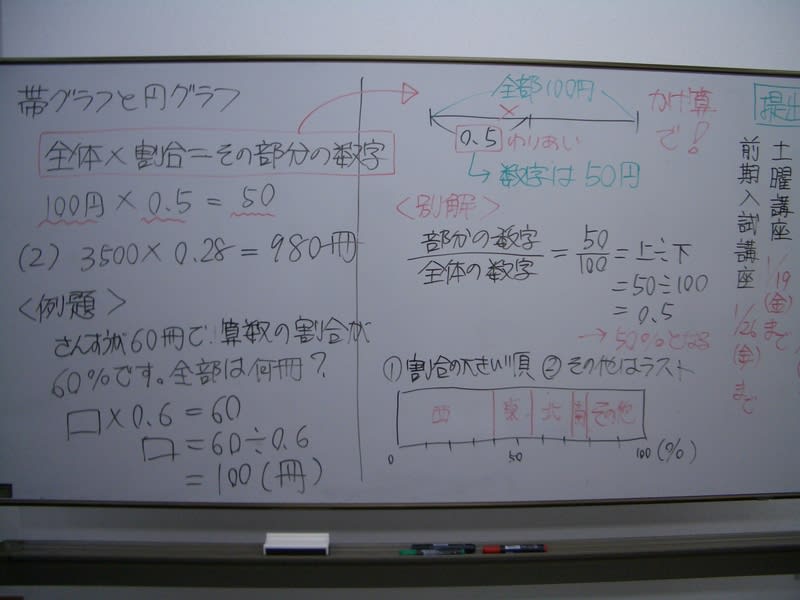 帯グラフと円グラフ
全体×割合=その部分の数字
100円×0.5=50
(2) 3500×0.28=980冊
<例題>
さんすうが60冊で、算数の割合が
60%です。全部は何冊?
□×0.6=60
□=60÷0.6
=100(冊)
全部100円
×
0.5 わりあい
→数字は50円
かけ算
で!
<別解>
部分の数字/全体の数字=50/100=上÷下
=50÷100
=0.5
→50%となる
①割合の大きい順 ②その他はラスト
西 東 北 南 その他
0 50 100 (%)
提出
土曜講座 1/19(金)まで
前期入試講座 1/26(金)まで